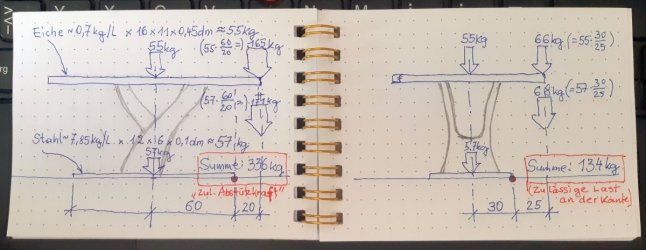 Eiche ~0,7kg/L × 16×11×0,45dm ≈ 55kg
55kg (55·60/20=) 165kg
(57·60/20=) 171kg
Stahl ~ 7,85kg/L × 12 × 16 × 0,1dm ≈ 57kg
57kg
Summe: 336kg
"zul. Abstützkraft"
60 20
55kg 66kg (=55·30/25)
68kg (=57·30/25)
57kg
Summe: 134kg
(zulässige Last
an der Kante)
30 25